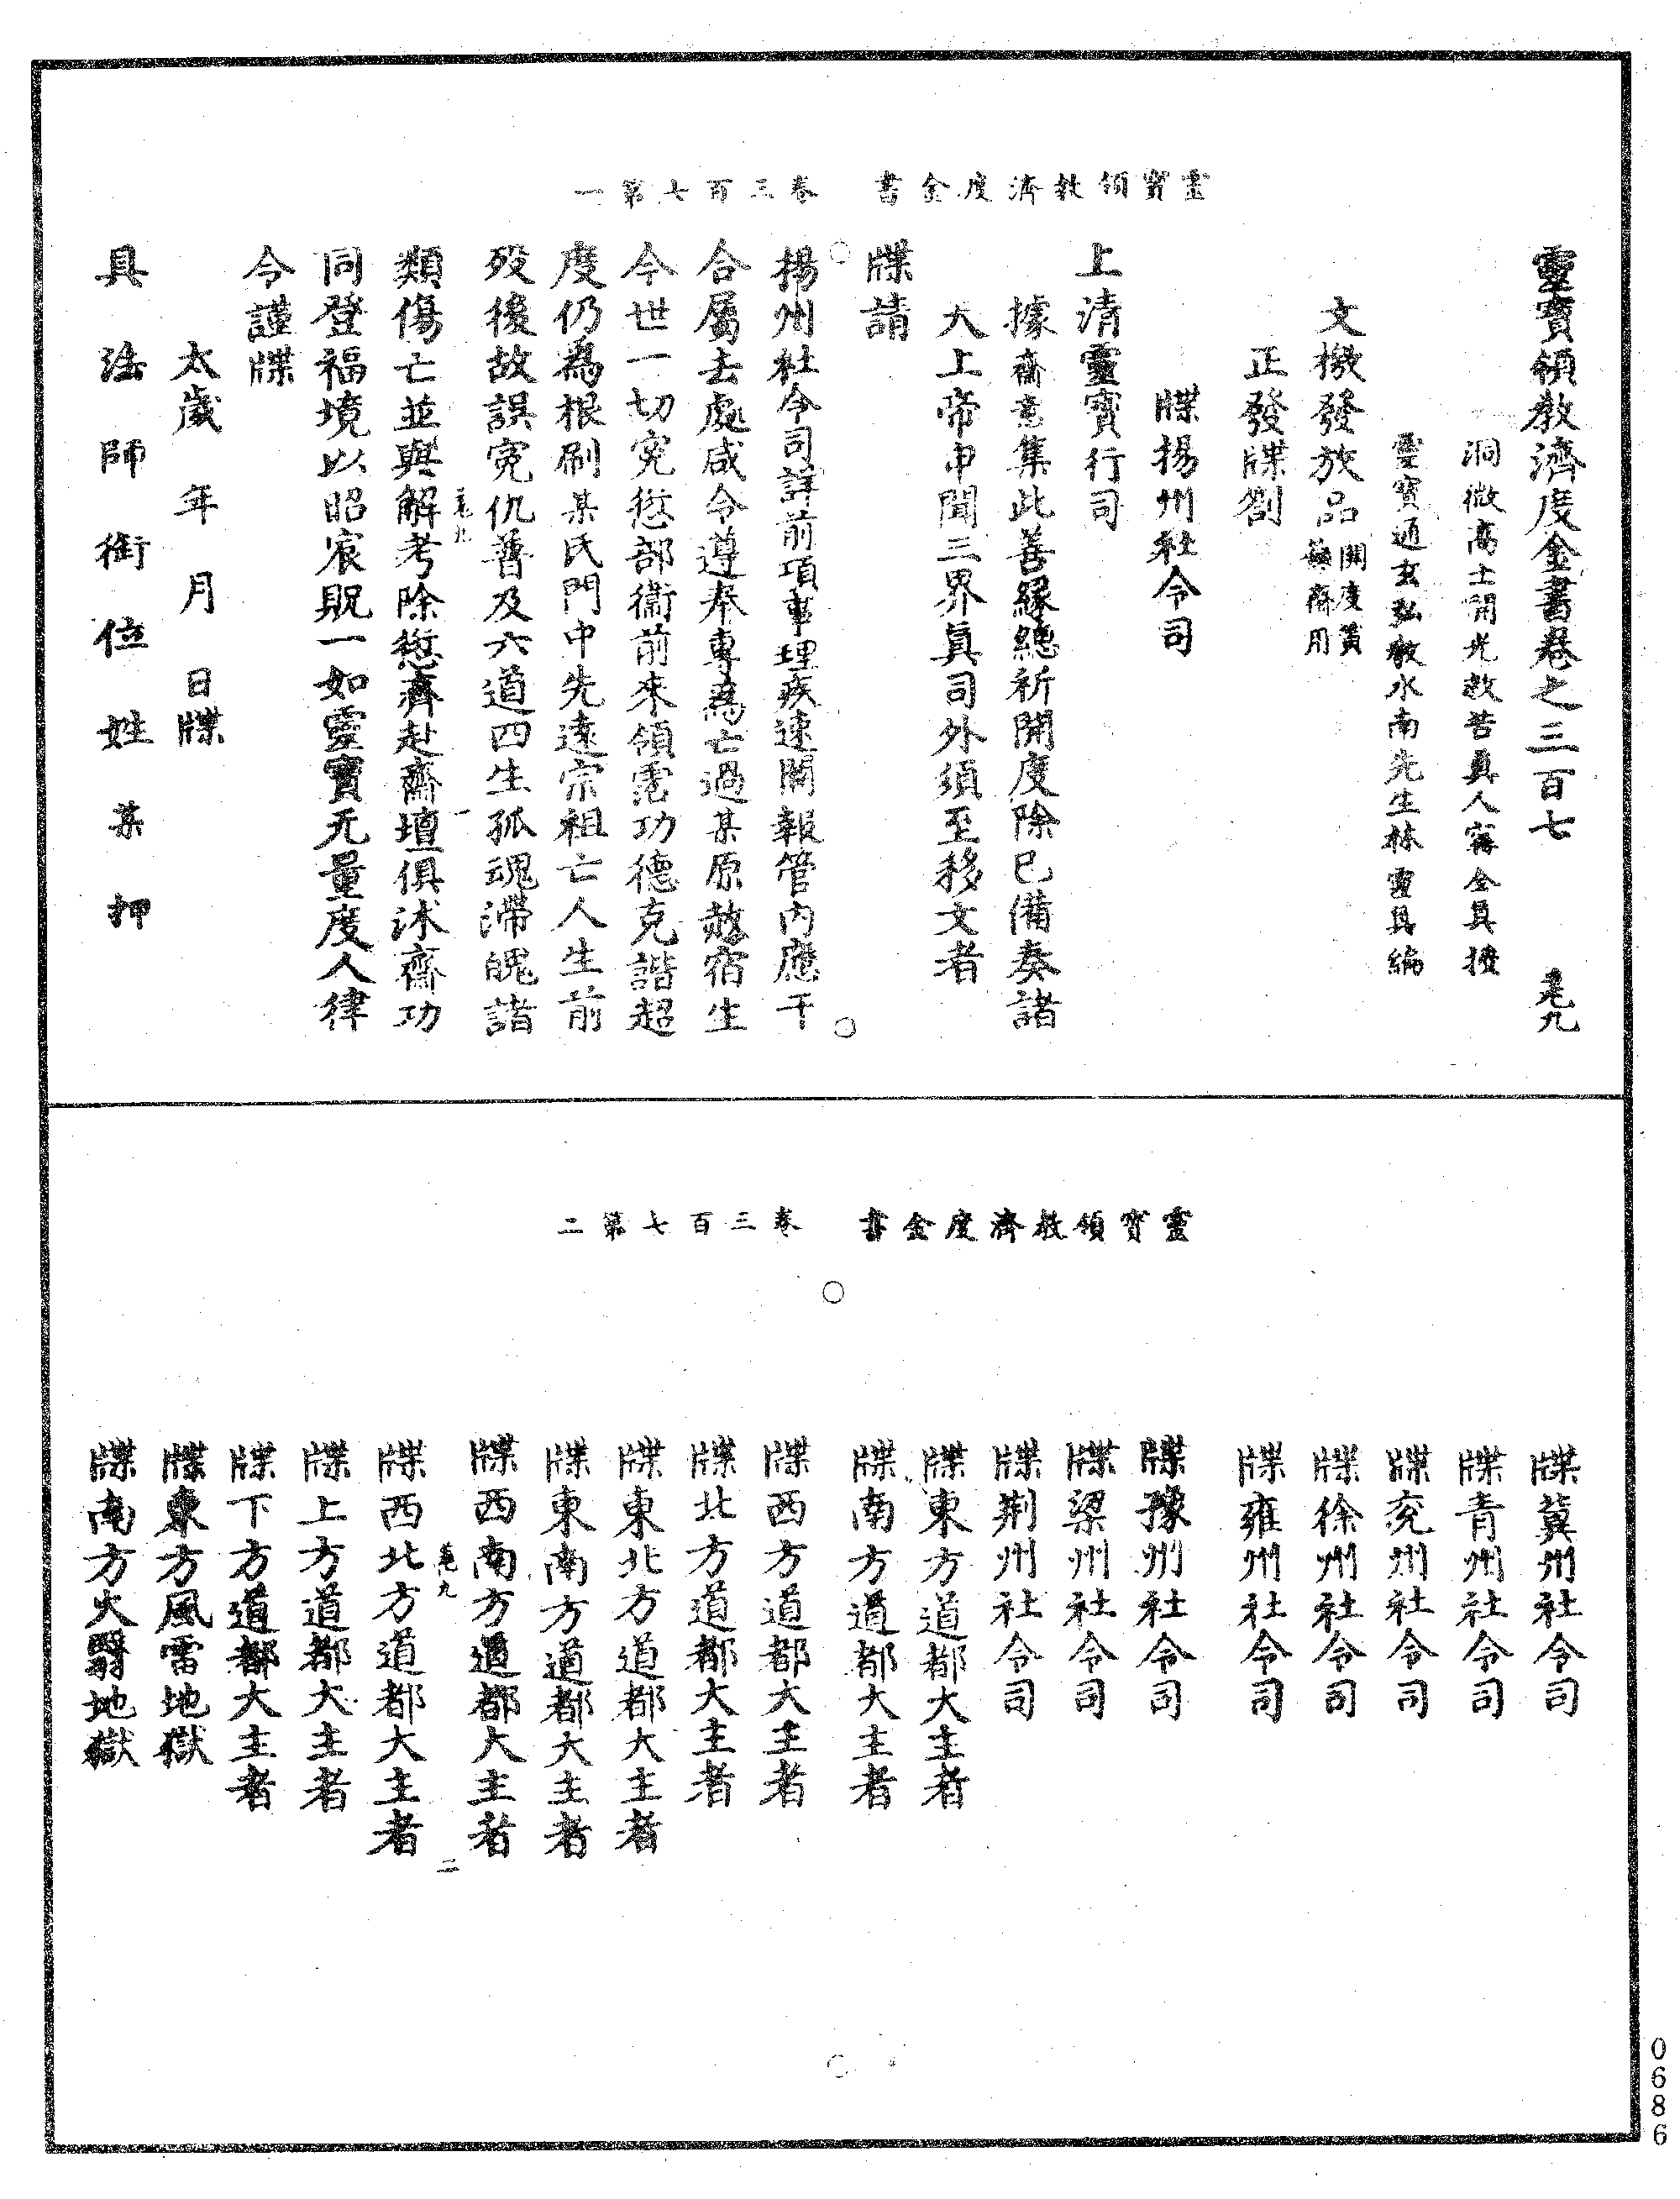 靈寶領教濟度金書　卷三百七第一
靈寶領教濟度金書卷之三百七
洞微高士開光救苦真人甯全真授
靈寶通玄弘教水南先生林靈真編
文檄發放品開度黃籙齋用
正發牒劄
牒揚州社令司
上清靈寶行司
據齋意集此善緣總祈開度除已備奏諸
大上帝申聞三界真司外須至移文者
牒請
揚州社令司詳前項事理疾速關報管內應干
合屬去處咸令遵奉專為亡過某原赦宿生
今世一切冤愆部衛前來領霑功德克諧超
度仍為根刷某氏門中先遠宗祖亡人生前
歿後故誤冤仇普及六道四生孤魂滯魄諸
類傷亡並與解考除愆齊赴齋壇俱沐齋功
同登福境以昭宸貺一如靈寶无量度人律
令謹牒
太歲　年　月　日牒
具法師銜位姓某押
靈寶領教濟度金書　卷三百七第二
牒冀州社令司
牒青州社令司
牒兗州社令司
牒徐州社令司
牒雍州社令司
牒豫州社令司
牒梁州社令司
牒荆州社令司
牒東方道都大主者
牒南方道都大主者
牒西方道都大主者
牒北方道都大主者
牒東北方道都大主者
牒東南方道都大主者
牒西南方道都大主者
牒西北方道都大主者
牒上方道都大主者
牒下方道都大主者
牒東方風雷地獄
牒南方火翳地獄
0686